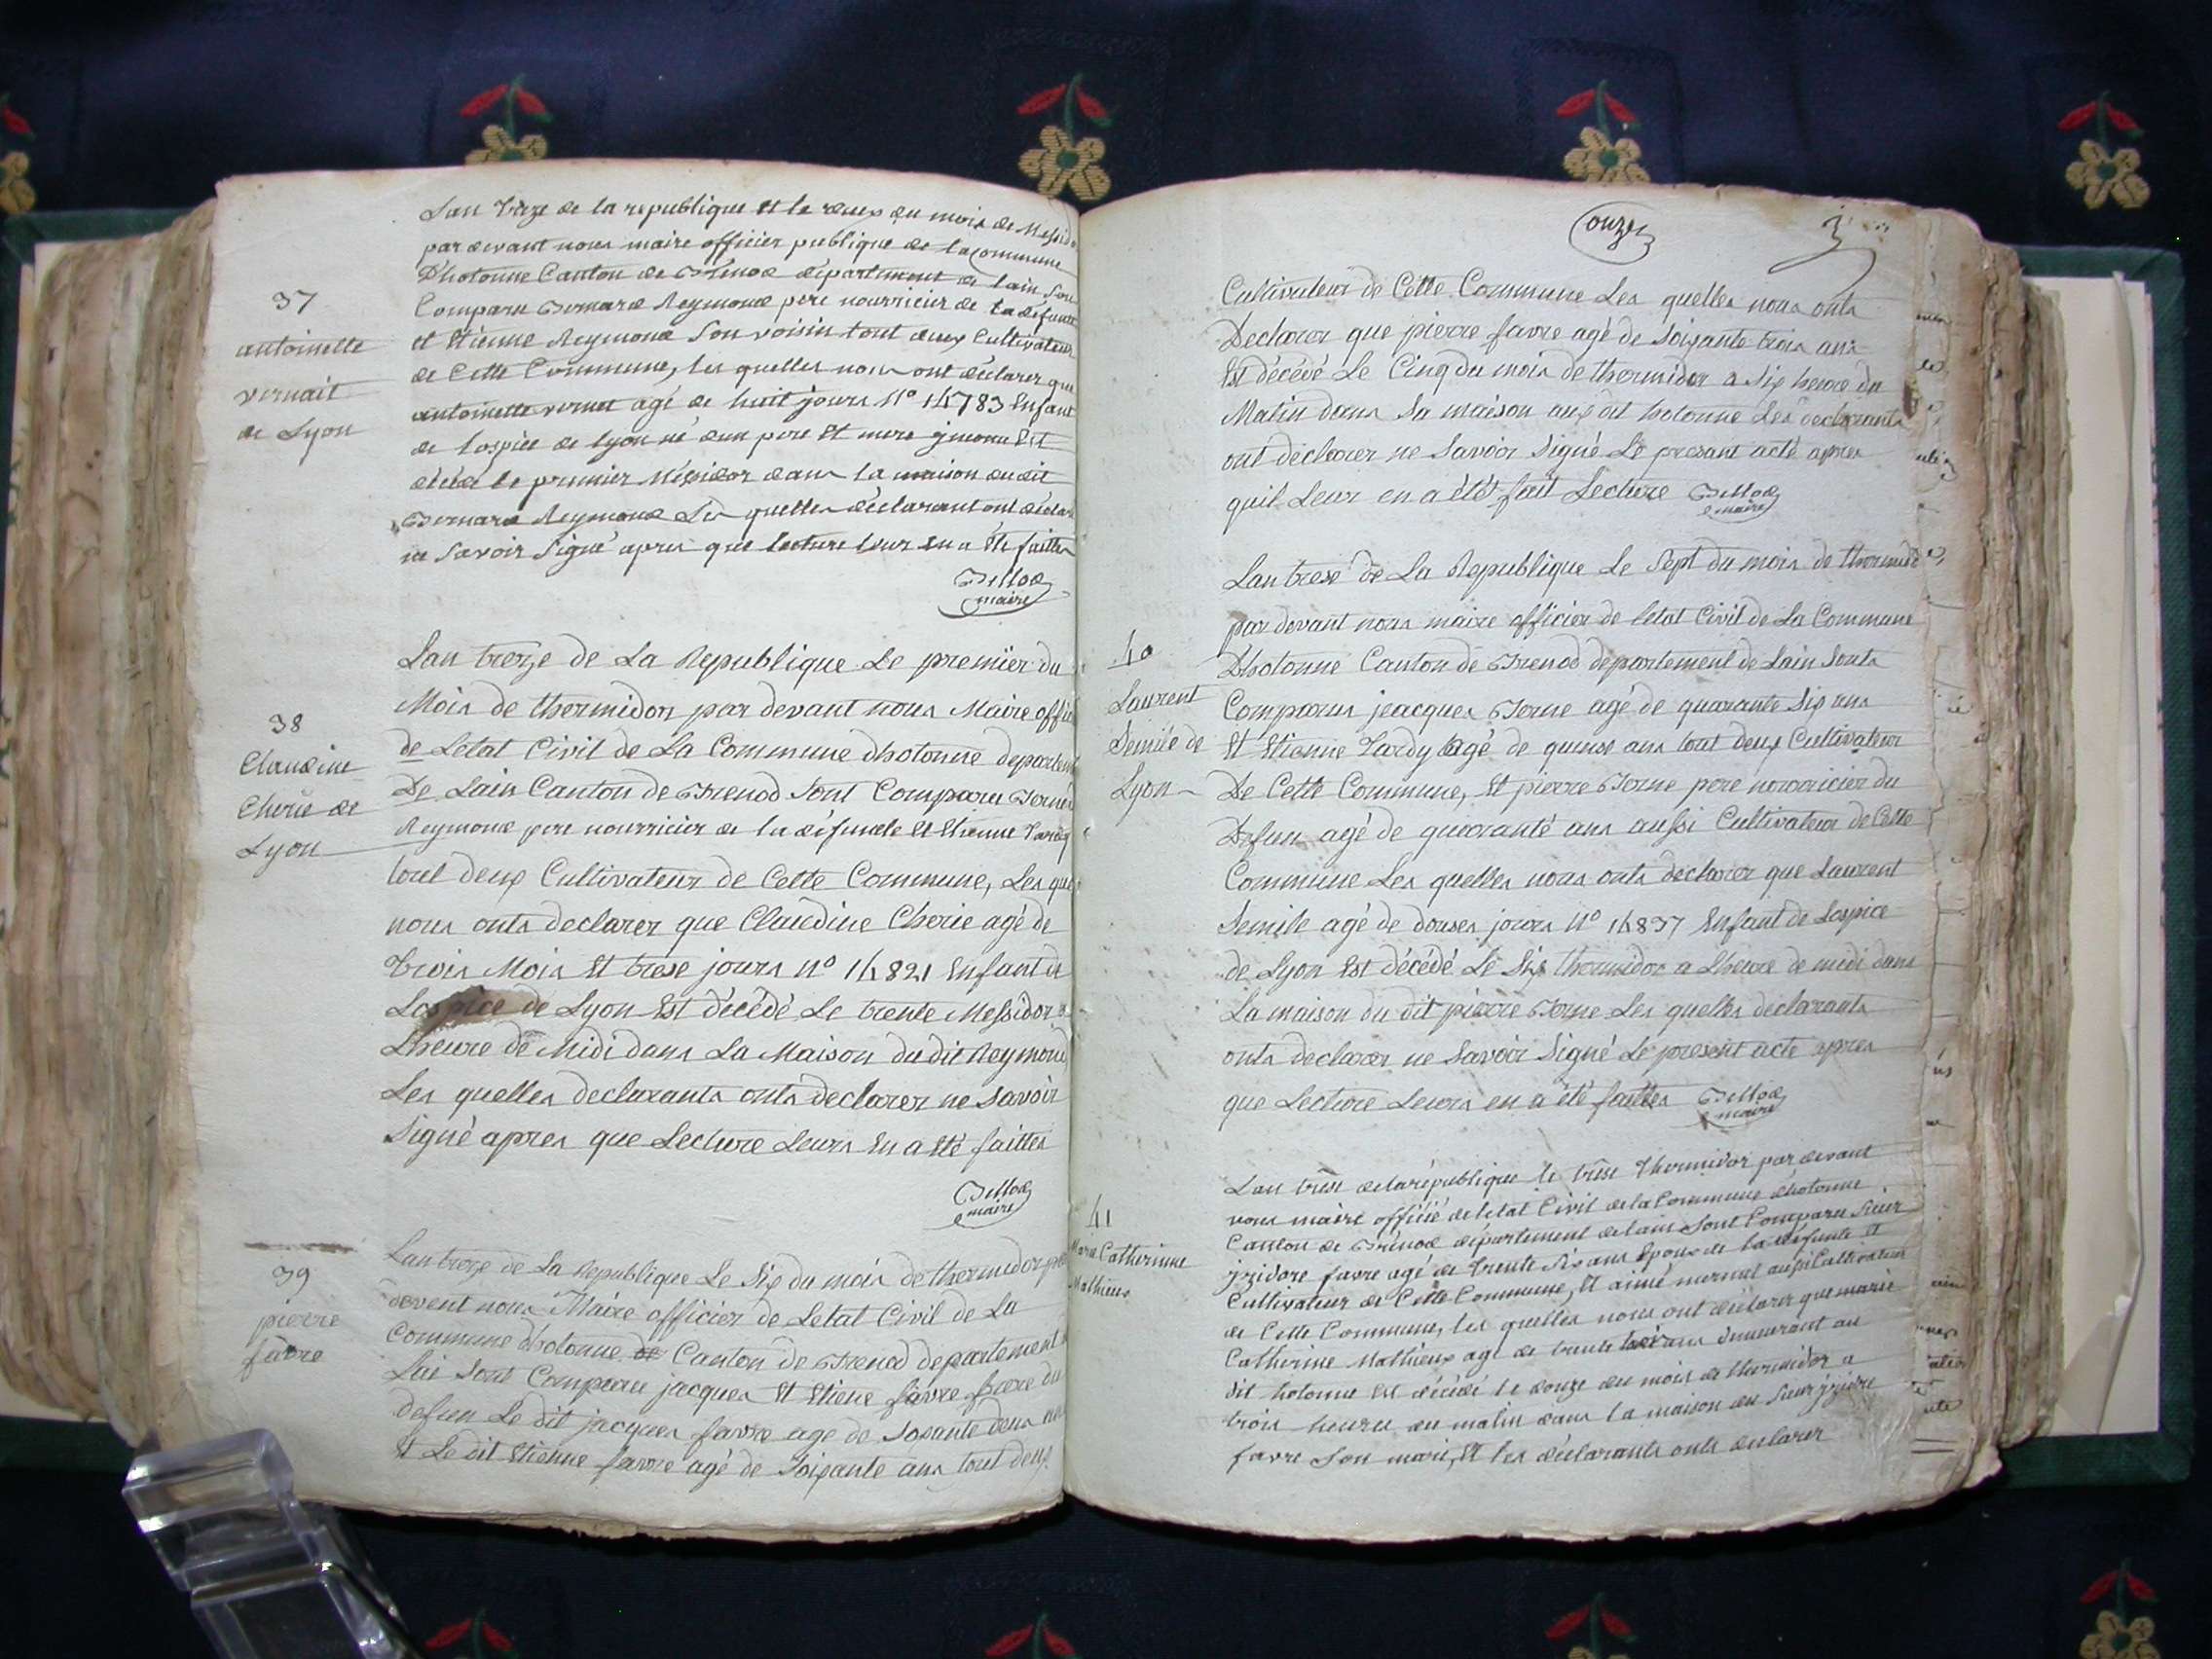 37
antoinette
vernait
de Lyon
Lan treze de la republique et le deux du mois de Messidor
par devant nous maire officier publique de la commune
Dhotonne Canton de Brenod département de lain sont
Comparu Bernard Reymond pere nourricier de la défunte
et Etienne Reymond Son voisin tout deux Cultivateur
de Cette Commune, les quelles nous ont déclarer que
antoinette vernet agé de huit jours N° 14783 Enfant
de lospice de lyon né dun pere et mere
décédé le premier Messidor dans la maison du dit
Bernard Reymond Les quelles déclarant ont déclarer
ne Savoir Signé apres que lecture leur en a été faittes
maire
38
Claudine
Cherie de
Lyon
Lan treze de La Republique Le premier du
Mois de thermidor par devant nous Maire officier
de Letat Civil de La Commune dhotonne departement
De Lain Canton de Brenod Sont Comparu Bernard
Reymond pere nourricier de la défuncte et Etienne Tardy
tout deux Cultivateur de Cette Commune, Les quelles
nous onts declarer que Claudine Cherie agé de
trois Mois Et trese jours N° 14821 Enfant de
Lospice de Lyon Est décédé Le trente Messidor a
Lheure de Midi dans La Maison du dit Reymond
Les quelles declarants onts declarer ne savoir
Signé apres que Lecture Leurs En a été faittes
maire
39
pierre
favre
Lan treze de La Republique Le Six du mois de thermidor par
devent nous Maire officier de Letat Civil de La
Commune dhotonne de Canton de Brenod departement
Lai Sont Comparu jacques Et Etiene favre frere du
defun Le dit jacques favre age de Soxante deux ans
Et Le dit Etienne favre agé de Soixante ans tout deux
onze
Cultivateur de Cette Commune Les quelles nous onts
Declarer que pierre favre agé de Soixante trois ans
Est décédé Le Cinq du mois de thermidor a Six heure du
Matin dans Sa maison aux dit hotonne Les declarants
ont declarer ne Savoir Signé Le presant acté apres
quil Leur en a été fait Lecture
maire
40
Laurent
Semile de
Lyon
Lan trese de La Republique Le Sept du mois de thermidor
par devant nous maire officier de letat Civil de La Commune
Dhotonne Canton de Brenod departement de Lain Sonts
Comparus jeacques Borne agé de quarante Six ans
Et Etienne Tardy agé de quinse ans tout deux Cultivateur
De Cette Commune, Et pierre Borne pere nourricier du
Defun agé de quarante ans aussi Cultivateur de Cette
Commune Les quelles nous onts declarer que Laurent
Semile agé de douses jours N° 14837 Enfant de Lospice
de Lyon Est décédé Le Six thermidor a Lheure de midi dans
La maison du dit pierre Borne Les quelles declarants
onts declarer ne Savoir Signé Le present acte apres
que Lecture Leurs en a été faittes
maire
41
Marie Catherinne
Mathieux
Lan trese de la république le trese thermidor par devant
nous maire officié de letat Civil de la Commune dhotonne
Canton de Brénod département de lain Sont Comparu Sieur
jzidore favre agé de trente Six ans Epoux de la défunte et
Cultivateur de Cette Commune, Et aimé mermet aussi Cultivateur
de Cette Commune, les quelles nous ont déclarer que marie
Catherine Mathieux agé de trente trois ans demeurant au
dit hotonne Est décédé le douze du mois de thermidor a
trois heures du matin dans la maison du Sieur jzidore
favre Son marie, Et les déclarants onts declarer